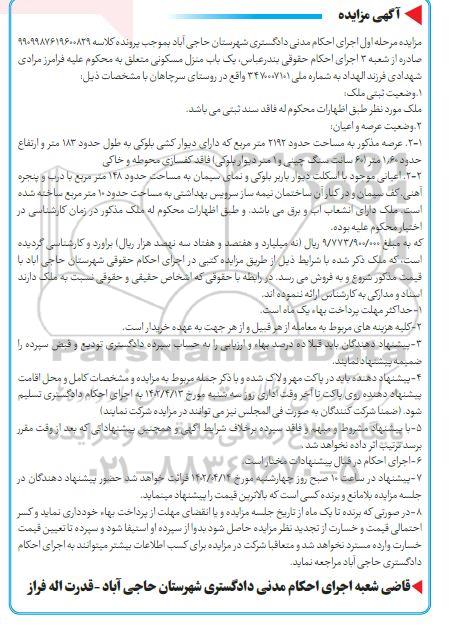 آگهی مزایده
مزایده مرحله اول اجرای احکام مدنی دادگستری شهرستان حاجی آباد بموجب پرونده کلاسه ۹۹۰۹۹۸۷۶۱۹۶۰۰۸۲۹
صادره از شعبه ۳ اجرای احکام حقوقی بندرعباس، یک باب منزل مسکونی متعلق به محکوم علیه فرامرز مرادی
شهدادی فرزند الهداد به شماره ملی ۳۴۷۰۰۰۷۱۰۱ واقع در روستای سرچاهان با مشخصات ذیل:
۱.وضعیت ثبتی ملک:
ملک مورد نظر طبق اظهارات محکوم له فاقد سند ثبتی می باشد.
۲.وضعیت عرصه و اعیان:
۲-۱. عرصه مذکور به مساحت حدود ۲۱۹۲ متر مربع که دارای دیوار کشی بلوکی به طول حدود ۱۸۳ متر و ارتفاع
حدود ۱٫۶۰ متر (۶۰ سانت سنگ چینی و ۱ متر دیوار بلوکی) فاقد کفسازی محوطه و خاکی
۲-۲. اعیانی موجود با اسکلت دیوار باربر بلوکی و نمای سیمان به مساحت حدود ۱۴۸ متر مربع با درب و پنجره
آهنی، کف سیمان و در کنار آن ساختمان نیمه ساز سرویس بهداشتی به مساحت حدود ۱۰ متر مربع ساخته شده
است. ملک دارای انشعاب آب و برق می باشد. و طبق اظهارات محکوم له ملک مذکور در زمان کارشناسی در
اختیار محکوم علیه بوده.
که به مبلغ ۹/۷۷۳/۹۰۰/۰۰۰ ریال (نه میلیارد و هفتصد و هفتاد سه نهصد هزار ریال) براورد و کارشناسی گردیده
است، که ملک ذکر شده با شرایط ذیل از طریق مزایده کتبی در اجرای احکام حقوقی شهرستان حاجی آباد با
قیمت مذکور شروع و به فروش می رسد. در رابطه با حقوقی که اشخاص حقیقی و حقوقی نسبت به ملک دارند
اسناد و مدارکی به کارشناس ارائه ننموده اند.
۱-حداکثر مهلت پرداخت بهاء یک ماه است.
۲-کلیه هزینه های مربوط به معامله از هر قبیل و از هر جهت به عهده خریدار است.
۳-پیشنهاد دهندگان باید قبلا ده درصد بهاء و ارزیابی را به حساب سپرده دادگستری تودیع و قبض سپرده را
ضمیمه پیشنهاد نمایند.
۴-پیشنهاد دهنده باید در پاکت مهر و لاک شده و با ذکر جمله مربوط به مزایده و مشخصات کامل و محل اقامت
پیشنهاد دهنده روی پاکت تا آخر وقت اداری روز سه شنبه مورخ ۱۴۰۲/۴/۱۳ به اجرای احکام دادگستری تسلیم
شود. (ضمنا شرکت کنندگان به صورت فی المجلس نیز می توانند در مزایده شرکت نمایند)
۵-با پیشنهاد مشروط و مبهم و فاقد سپرده برخلاف شرایط آگهی و همچنین پیشنهاداتی که بعد از وقت مقرر
برسد ترتیب اثر داده نخواهد شد.
۶-اجرای احکام در قبال پیشنهادات مختار است.
۷-پیشنهاد در ساعت ۱۰ صبح روز چهارشنبه مورخ ۱۴۰۲/۰۴/۱۴ قرائت خواهد شد حضور پیشنهاد دهندگان در
جلسه مزایده بلامانع و برنده کسی است که بالاترین قیمت را پیشنهاد مینماید.
۸-در صورتی که برنده تا یک ماه از تاریخ جلسه مزایده و یا انقضای مهلت از پرداخت بهاء خودداری نماید و کسر
احتمالی قیمت و خسارت از تجدید نظر مزایده حاصل شود بدوا از سپرده او استیفا شود و سپرده تا تعیین قیمت
خسارت وارده مسترد نخواهد شد و متعاقبا شرکت در مزایده برای کسب اطلاعات بیشتر میتوانند به اجرای احکام
دادگستری حاجی آباد مراجعه نماید.
قاضی شعبه اجرای احکام مدنی دادگستری شهرستان حاجی آباد -قدرت اله فراز
ParsNamadData
۰۲۱-۸۸۳۴۹۶۷۰-۵